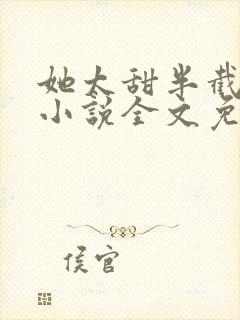 她太甜半截
小说全文免
侯官